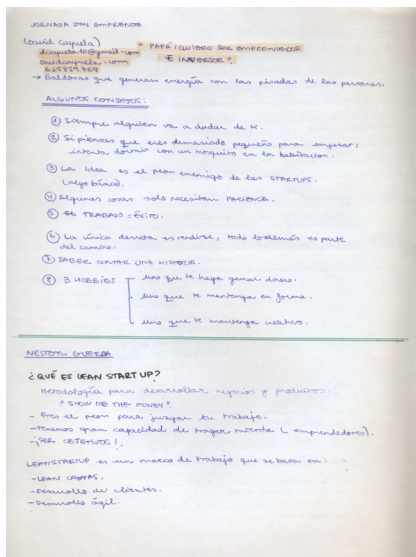 JORNADA DAY EMPRENDE
(David Cayuela)
dcayuela10@gmail.com
davidcayuela.com
625859768
"PAPÁ ¡QUIERO SER EMPRENDEDOR
E INVERSOR".
→ Baldosas que generan energía con las pisadas de las personas.
ALGUNOS CONSEJOS:
① Siempre alguien va a dudar de ti.
② Si piensas que eres demasiado pequeño para empezar,
intenta dormir con un mosquito en la habitación.
③ La Idea es el peor enemigo de las STARTUPS.
(algo básico).
④ Algunas cosas solo necesitan PACIENCIA.
⑤ EL TRABAJO = ÉXITO.
⑥ La única derrota es rendirse, todo lo demás es parte
del camino.
⑦ SABER CONTAR UNA HISTORIA.
⑧ 3 HOBBIES
Uno que te haga ganar dinero.
Uno que te mantenga en forma.
Uno que te mantenga creativo.
NESTOR GUERRA
¿QUÉ ES LEAN STARTUP?
Metodología para desarrollar negocios y productos.
"SHOW ME THE MONEY".
- Eres el peor para juzgar tu trabajo.
- Tenemos gran capacidad de tragar mierda (emprendedores).
- ¡SER OBJETIVOS!
LEANSTARTUP es un marco de trabajo que se basa en:
- LEAN CANVAS.
- Desarrollo de clientes.
- Desarrollo ágil.